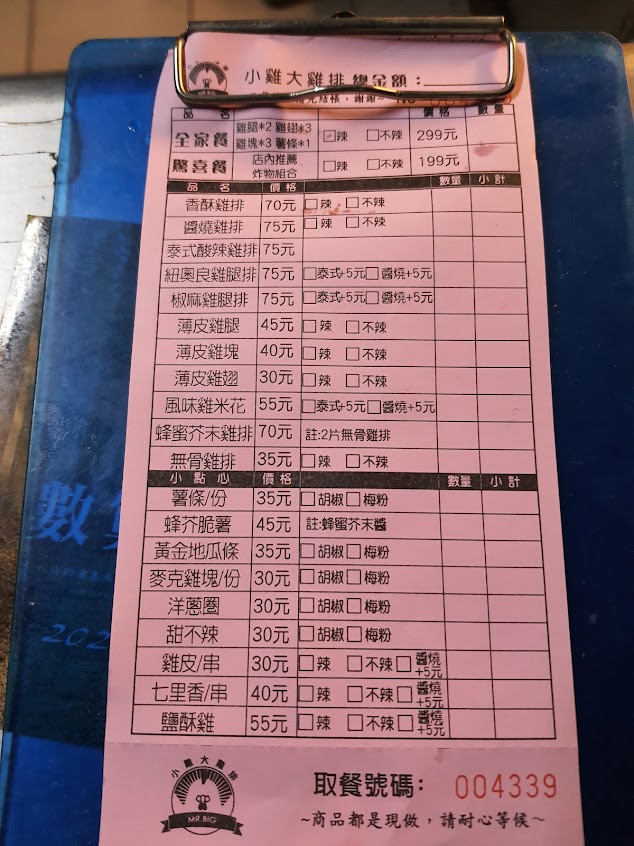 小雞大雞排 總金額：
先結帳，謝謝~ No
品名 價格 數量
全家餐 雞腿*2 雞翅*3 雞塊*3 薯條*1 □辣 □不辣 299元
驚喜餐 店內推薦 炸物組合 □辣 □不辣 199元
品名 價格 數量 小計
香酥雞排 70元 □辣 □不辣
醬燒雞排 75元 □辣 □不辣
泰式酸辣雞排 75元
紐奧良雞腿排 75元 □泰式+5元 □醬燒+5元
椒麻雞腿排 75元 □泰式+5元 □醬燒+5元
薄皮雞腿 45元 □辣 □不辣
薄皮雞塊 40元 □辣 □不辣
薄皮雞翅 30元 □辣 □不辣
風味雞米花 55元 □泰式+5元 □醬燒+5元
蜂蜜芥末雞排 70元 註:2片無骨雞排
無骨雞排 35元 □辣 □不辣
小點心 價格 數量 小計
薯條/份 35元 □胡椒 □梅粉
蜂芥脆薯 45元 註:蜂蜜芥末醬
黃金地瓜條 35元 □胡椒 □梅粉
麥克雞塊/份 30元 □胡椒 □梅粉
洋蔥圈 30元 □胡椒 □梅粉
甜不辣 30元 □胡椒 □梅粉
雞皮/串 30元 □辣 □不辣 □醬燒+5元
七里香/串 40元 □辣 □不辣 □醬燒+5元
鹽酥雞 55元 □辣 □不辣 □醬燒+5元
小雞大雞排
MR.BIG
取餐號碼: 004339
~商品都是現做，請耐心等候~
數
202